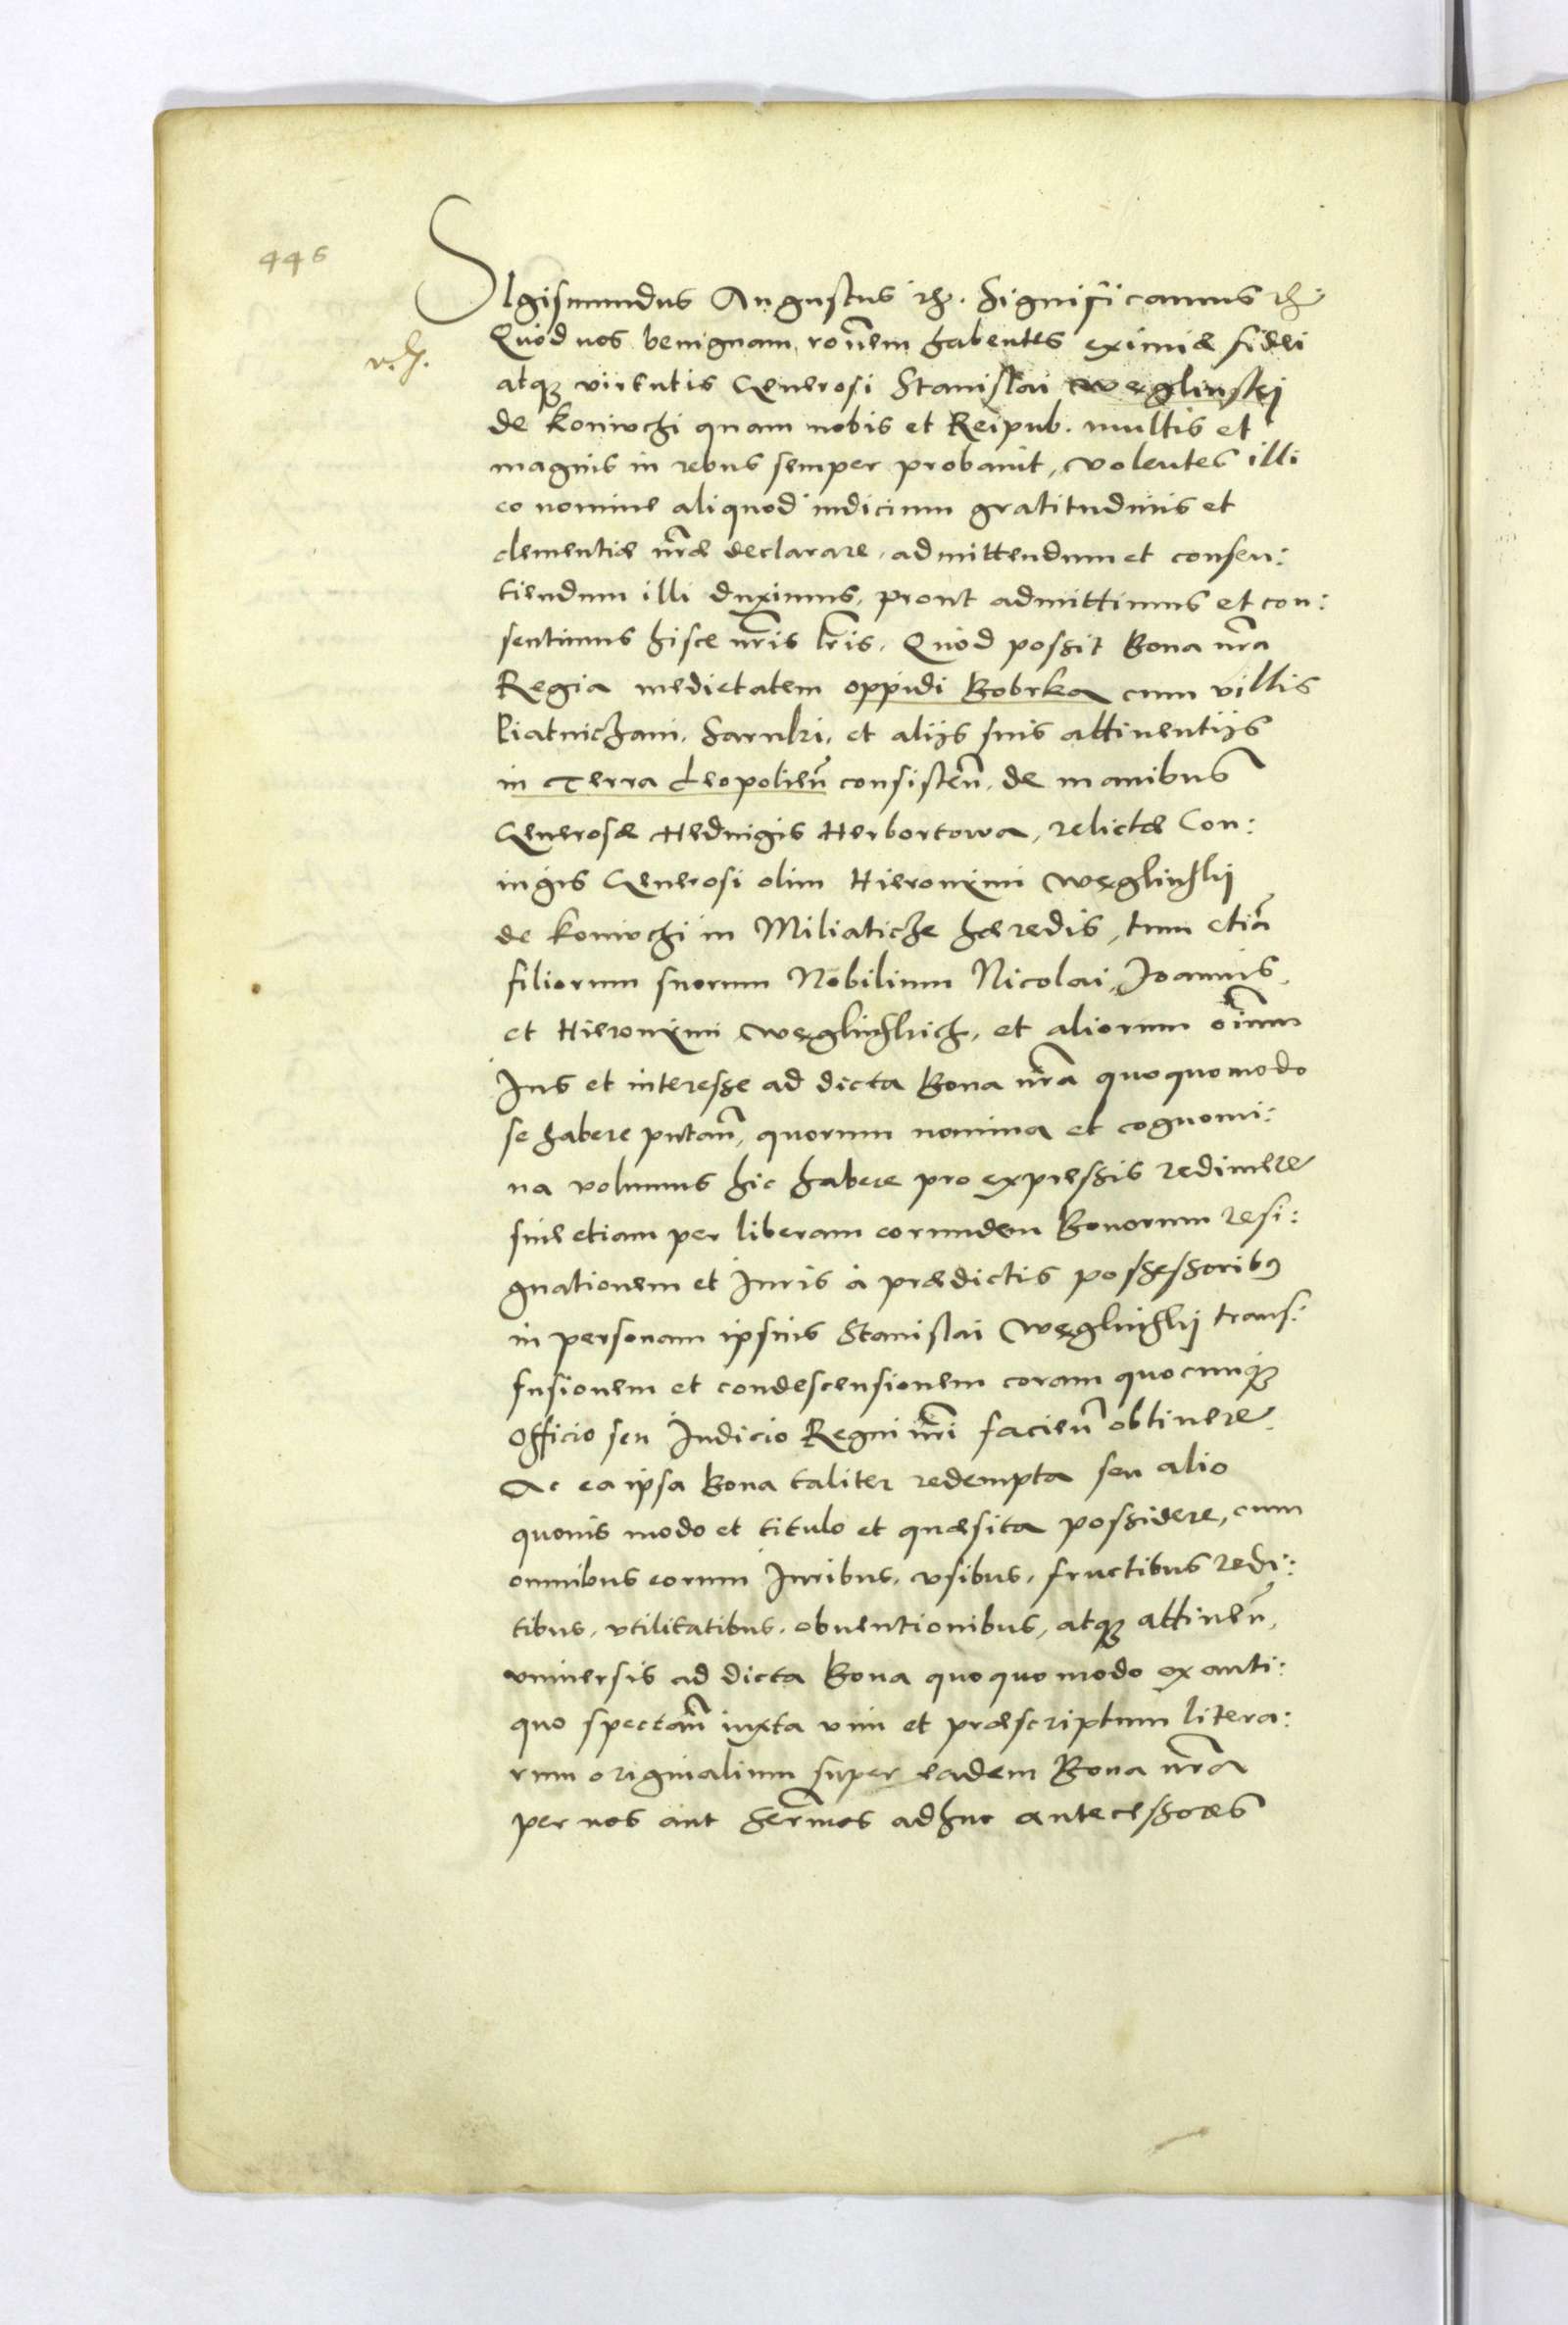 446
SIgismundus Augustus etc. Significamus etc.
Quod nos benignam rōnem habentes eximiæ fidei
atq3 virtutis Generosi Stanislai Węglinskij
de Koniuchi quam nobis et Reipub. multis et
magnis in rebus semper probauit, volentes illi
eo nomine aliquod indicium gratitudinis et
clementiæ nr̄æ declarare, admittendum et consen:
tiendum illi duximus, prout admittimus et con:
sentimus hisce nr̄is lr̄is. Quod possit Bona nr̄a
Regia medietatem oppidi Bobrka cum villis
Piatniczani, Sarnki, et alijs suis attinentijs
in Terra Leopolien̄ consisten̄, de manibus
Generosæ Heduigis Herbortowa, relictæ Con:
iugis Generosi olim Hieronimi Węglinskij
de Koniuchi in Miliaticze hæredis, tum etiā
filiorum suorum Nobilium Nicolai, Joannis,
et Hieronimi Węglinskich, et aliorum oīum
Jus et interesse ad dicta Bona nr̄a quoquomodo
se habere putan̄, quorum nomina et cognomi:
na volumus hic habere pro expressis redimere
siue etiam per liberam eorundem Bonorum resi:
gnationem et Juris à prædictis possessorib9
in personam ipsius Stanislai Węglinskij trans:
fusionem et condescensionem coram quocunq3
Officio seu Judicio Regni nr̄i facien̄ obtinere.
Ac ea ipsa Bona taliter redempta seu alio
quouis modo et titulo et quæsita possidere, cum
omnibus eorum Juribus, vsibus, fructibus redi:
tibus, vtilitatibus, obuentionibus, atq3 attinen̄,
vniuersis ad dicta Bona quoquo modo ex anti:
quo spectan̄ iuxta vim et præscriptum litera:
rum originalium super eadem Bona nr̄a
per nos aut Serm̄os adhuc antecessores